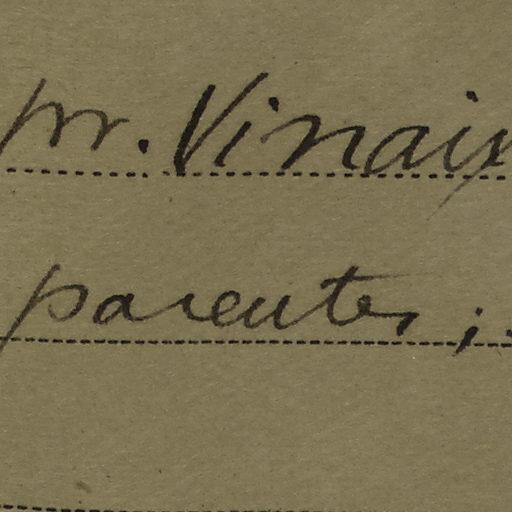 pr. Vinaix
parentes ;